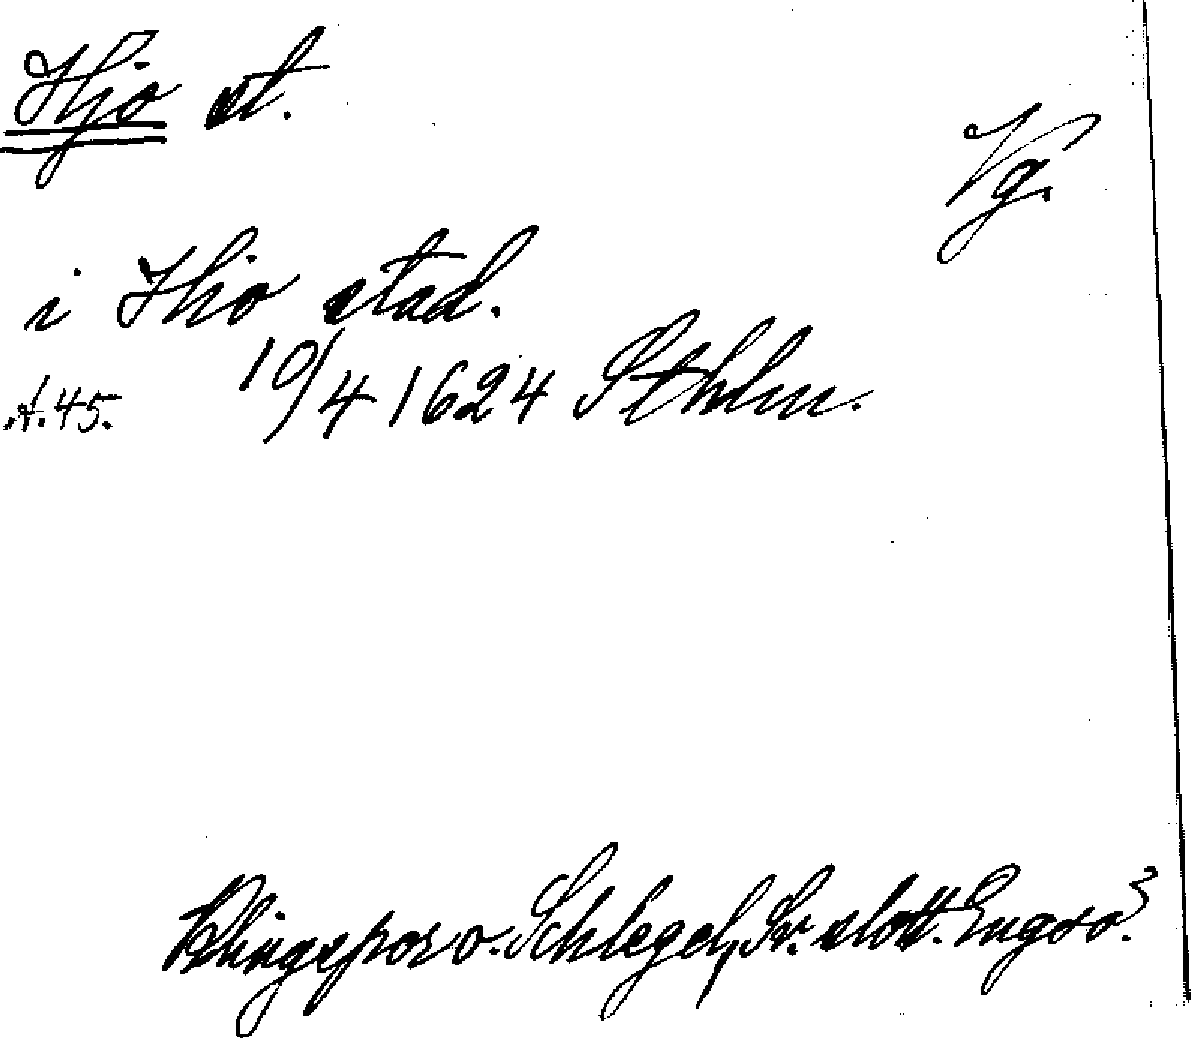 Hjo st.
Vg.
i Hjo stad.
A. 45. 10/4 1624 Sthlm.
Klingspor o. Schlegel, Sv. slott. Engsö.